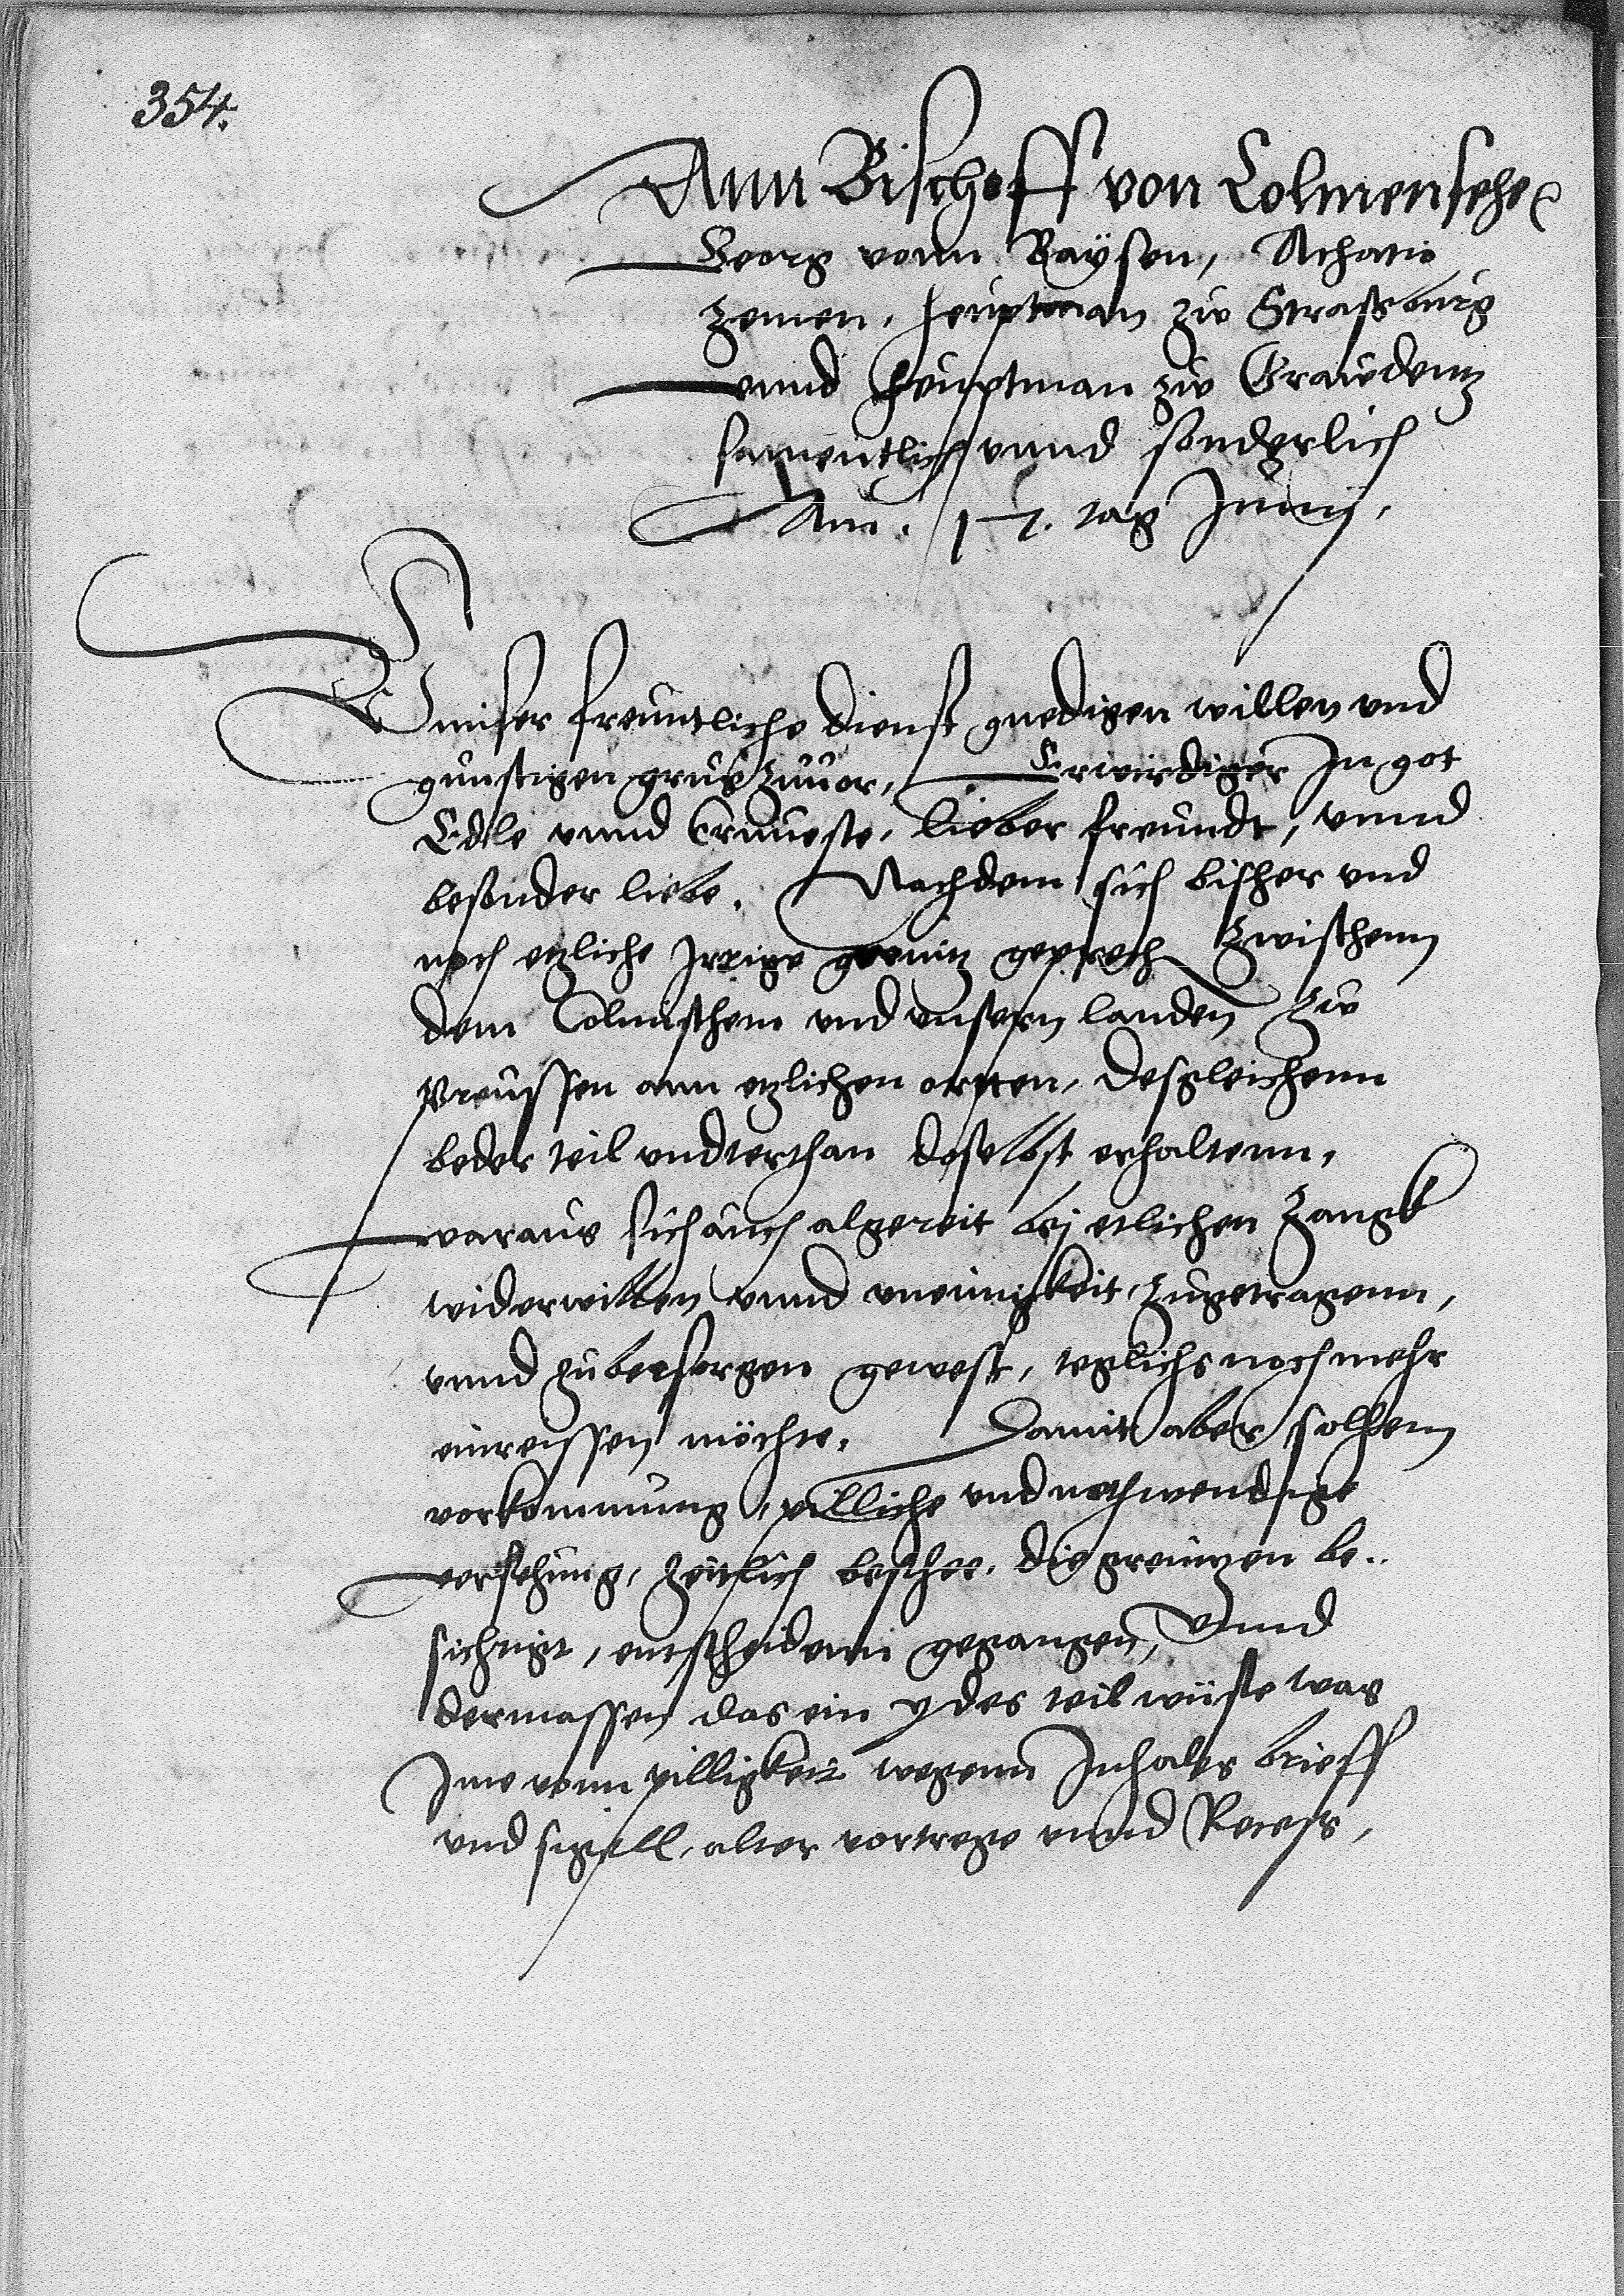 354.
Ann Bischoff von Colmensehe
Georg vonn Baÿsen, Achatio
Zemen, heuptman zw Strasburg
vnnd heuptman zw Graudentz
samentlich vnnd sonderlich
Am . 17. tag Junij,
Vnnser freuntliche dienst gnedigen willen vnd
gunstigen grus zuuor, Erwirdiger In got
Edle vnnd Ernueste, lieber freundt, vnnd
besonder liebe. Nachdem sich bisher vnd
noch etzliche Irrige grenitz geprech zwischenn
dem Colmischem vnd vnsern landen zw
Preussen ann etzlichen ortten, desgleichenn
beder teil vndterthan doselbst erhaltenn,
woraus sich auch algereit bej etlichen Zangk
widerwillen vnnd vneinigkeit, zugetragenn,
vnnd zubesorgen gewest, teglichs noch mehr
einreissen möchte. Damit aber solhem
vorkommung, pilliche vnd nothwendige
versehung, zeitlich beschee, die grenitzen be..
sichtigt, entscheidenn gegangen, Vnnd
dermassen das ein ydes teil wüste was
Ime vonn pilligkeit wegenn Inhalts brieff
vnd sigell, alter vortrege vnnd Recess,